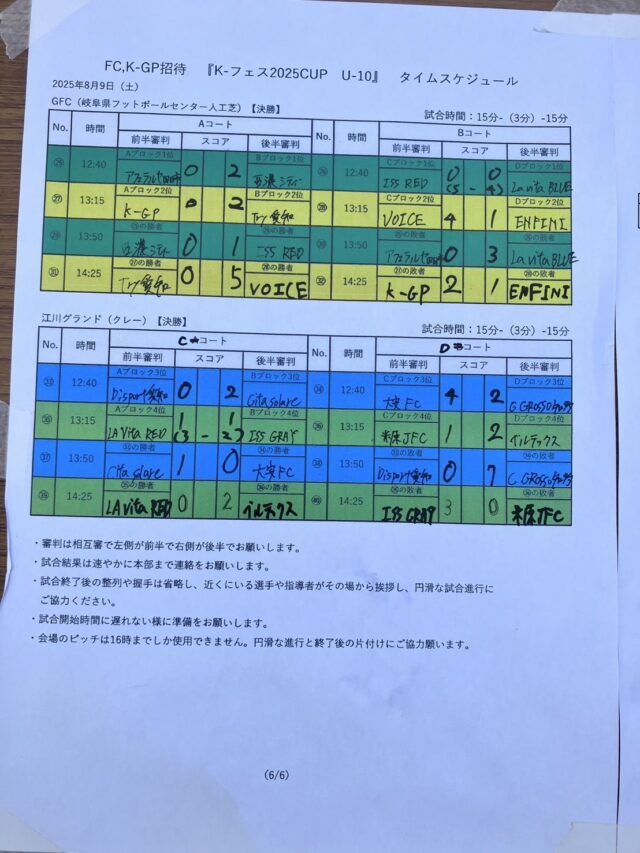 FC,K-GP招待 『K-フェス2025CUP U-10』 タイムスケジュール
2025年8月9日（土）
GFC（岐阜県フットボールセンター人工芝）【決勝】 試合時間：15分-（3分）-15分
No. 時間 Aコート No. 時間 Bコート
前半審判 スコア 後半審判 前半審判 スコア 後半審判
Aブロック1位 Bブロック1位 Cブロック1位 Dブロック1位
㉕ 12:40 0 2 西濃シティ ㉖ 12:40 ISS RED 0 0 (5 - 4) La vita BLUE
Aブロック2位 Bブロック2位 Cブロック2位 Dブロック2位
㉗ 13:15 K-GP 0 2 Try愛知 ㉘ 13:15 VOICE 4 1 ENFINI
㉕の勝者 ㉖の勝者 ㉕の敗者 ㉖の敗者
㉙ 13:50 西濃シティ 0 1 ISS RED ㉚ 13:50 0 3 La vita BLUE
㉗の勝者 ㉘の勝者 ㉗の敗者 ㉘の敗者
㉛ 14:25 Try愛知 0 5 VOICE ㉜ 14:25 K-GP 2 1 ENFINI
江川グランド（クレー）【決勝】 試合時間：15分-（3分）-15分
No. 時間 Cコート No. 時間 Dコート
前半審判 スコア 後半審判 前半審判 スコア 後半審判
Aブロック3位 Bブロック3位 Cブロック3位 Dブロック3位
㉝ 12:40 Disport愛知 0 2 Cita solare ㉞ 12:40 大安FC 4 2 G GROSO
Aブロック4位 Bブロック4位 Cブロック4位 Dブロック4位
13:15 LA Vita RED 1 1 (3 - 2) ISS GRAY 13:15 米原JFC 1 2 ベルデックス
㉝の勝者 ㉞の勝者 ㉝の敗者 ㉞の敗者
㊲ 13:50 Cita solare 1 0 大安FC ㊳ 13:50 Disport愛知 0 7 G GROSO
の勝者 の勝者 の敗者 の敗者
㊴ 14:25 LA vita RED 0 2 ベルデックス ㊵ 14:25 ISS GRAY 3 0 米原JFC
・審判は相互審で左側が前半で右側が後半でお願いします。
・試合結果は速やかに本部まで連絡をお願いします。
・試合終了後の整列や握手は省略し、近くにいる選手や指導者がその場から挨拶し、円滑な試合進行に
ご協力ください。
・試合開始時間に遅れない様に準備をお願いします。
・会場のピッチは16時までしか使用できません。円滑な進行と終了後の片付けにご協力願います。
(6/6)